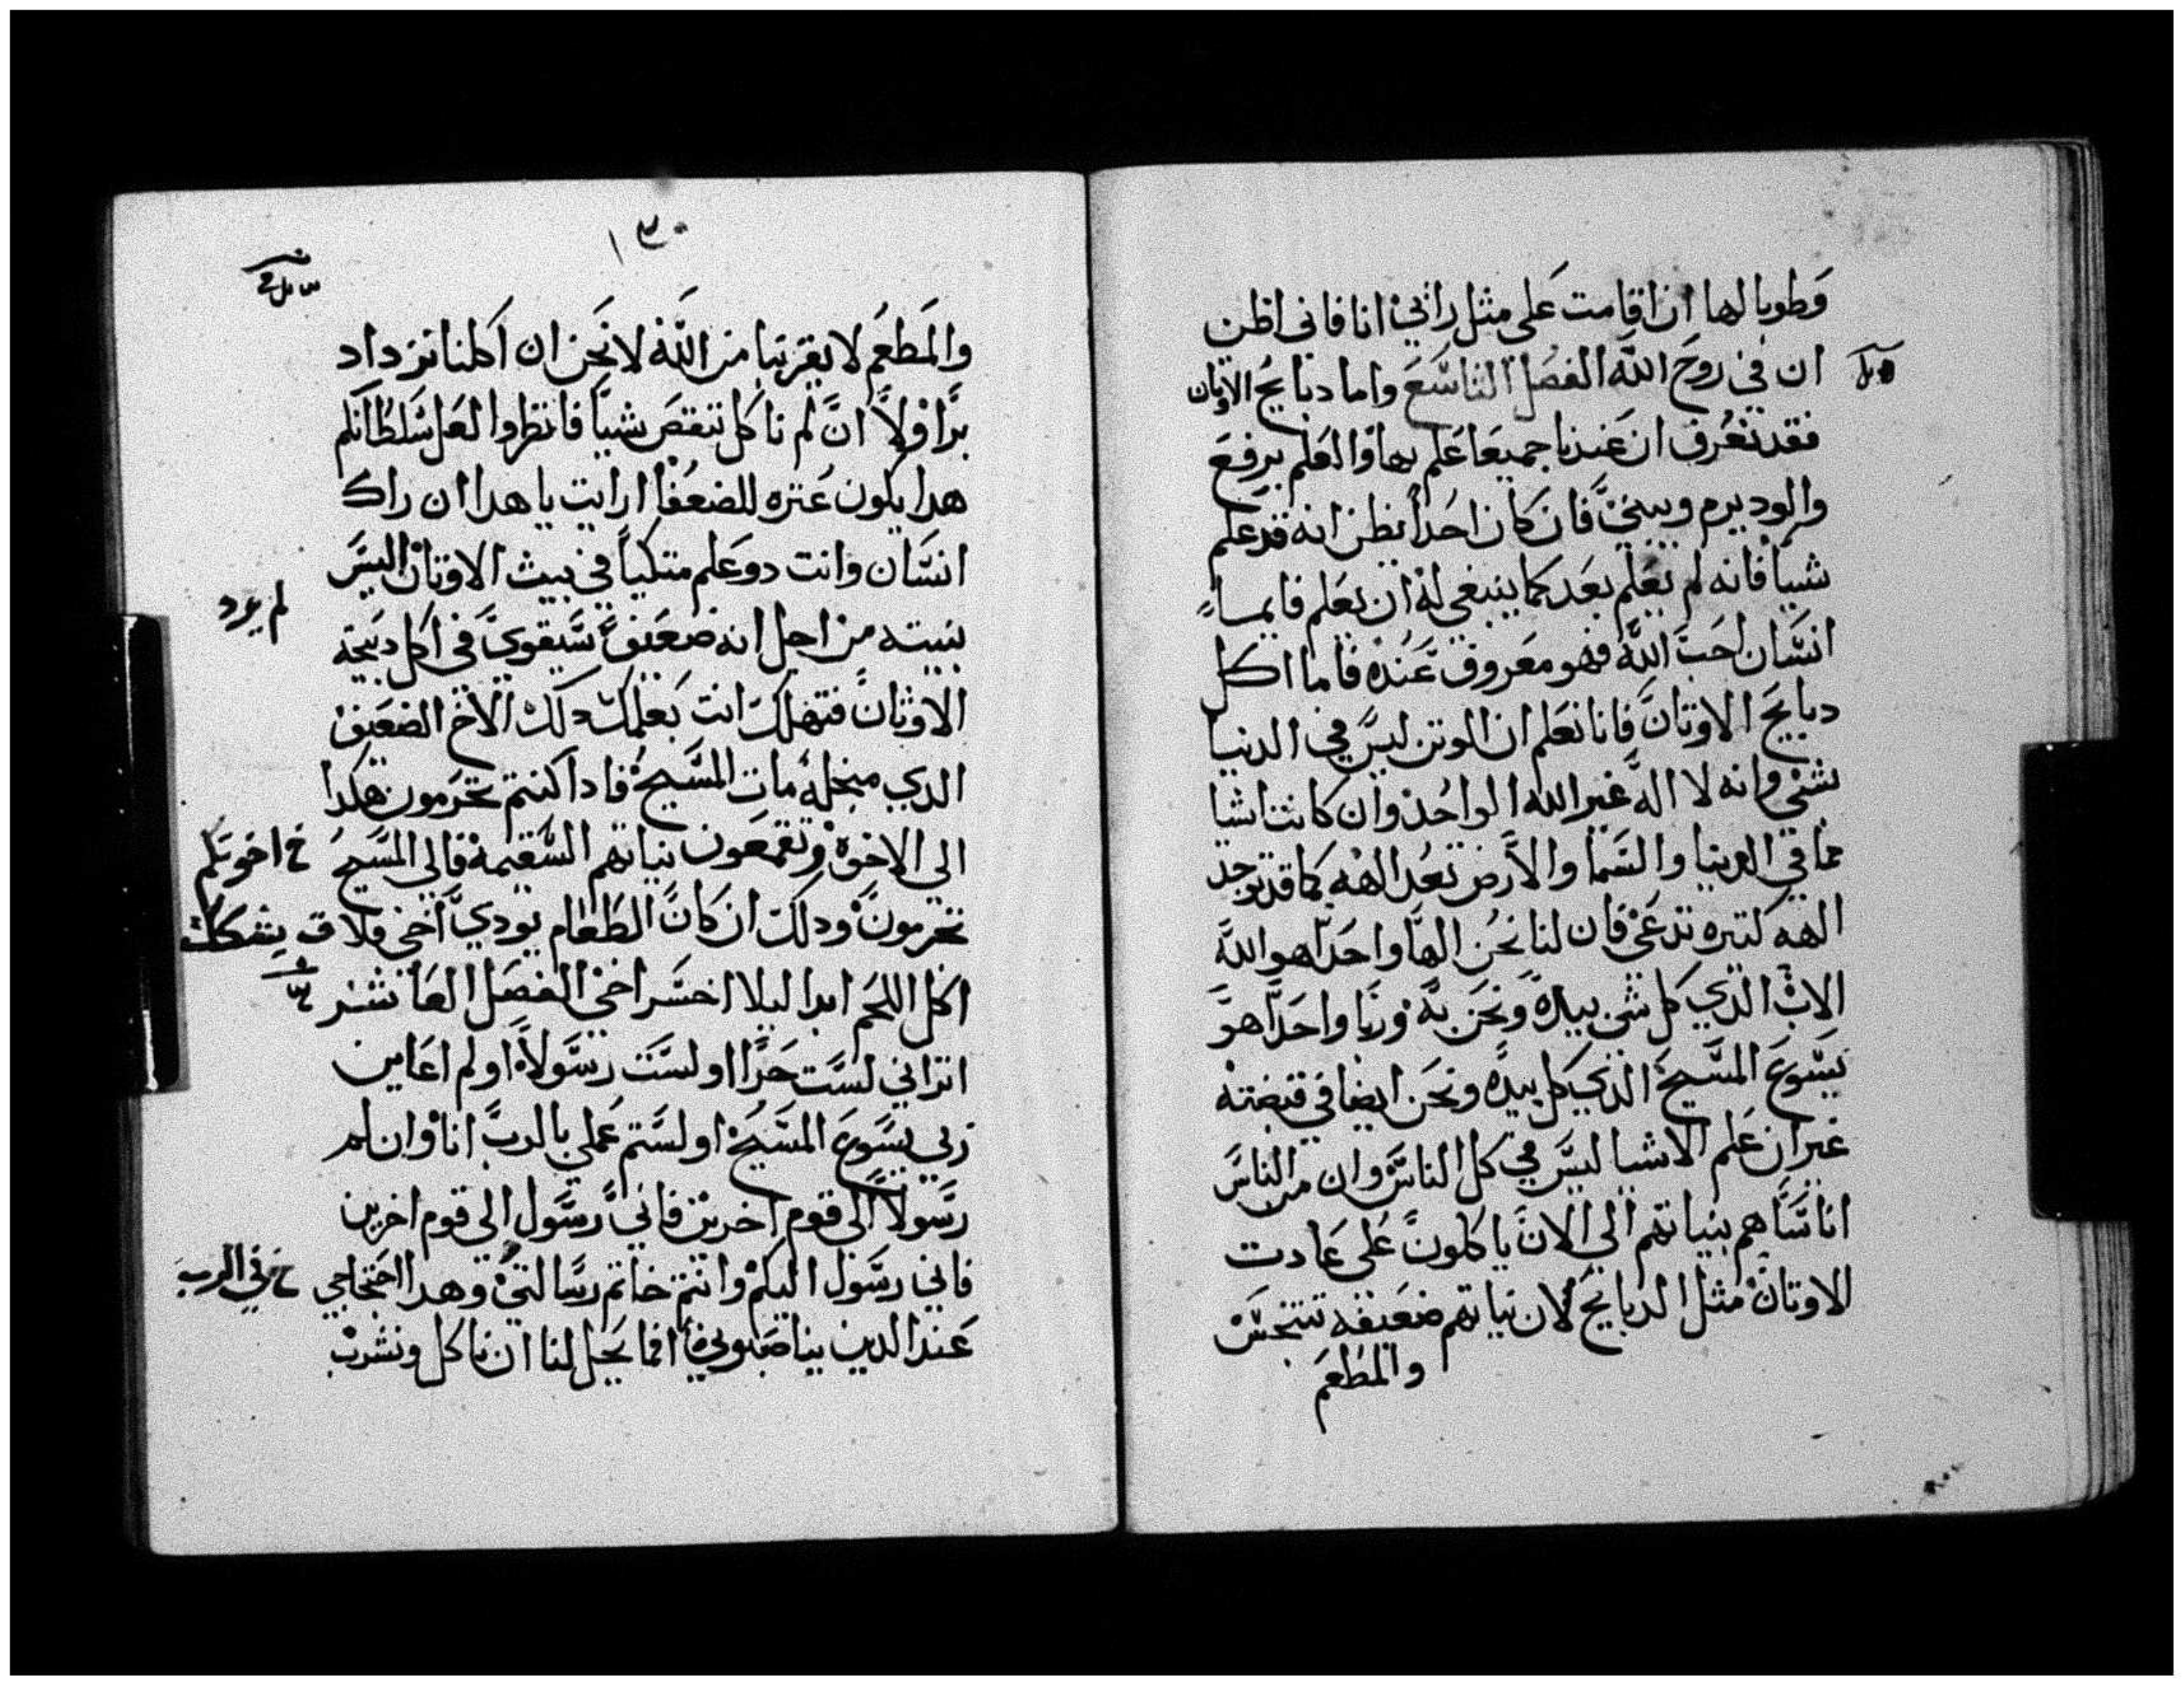 وطوبا لها ان اقامت على مثل رائي انا فاني اظن
ان في روح الله الفصل التاسع واما دبايح الاوتان
فقد نعرف ان عندنا جميعا علم بها والعلم يرفع
والود يرم ويبني فان كان احدا يظن انه قد علم
شيا فانه لم يعلم بعد كما ينبغي له ان يعلم فايما
انسان احب الله فهو معروف عنده فاما اكل
دبايح الاوتان فانا نعلم ان الوتن ليس في الدنيا
بشي وانه لا اله غير الله الواحد وان كانت اشيا
مما في الدنيا والسما والارض تعد الهه كما قد توجد
الهه كتيره تدعى فان لنا نحن الها واحدا هو الله
الاب الذي كل شي بيده ونحن به وربا واحدا هو
يسوع المسيح الذي كل بيده ونحن ايضا في قبضته
غير ان علم الاشيا ليس في كل الناس وان من الناس
اناسا هم بنياتهم الي الان ياكلون على عادت
الاوتان مثل الدبايح لان نياتهم ضعيفه تتنجس
والمطعم
١٣٠
والمطعم لا يقربنا من الله لا نحن ان اكلنا نزداد
برا ولا ان لم ناكل ننقص شيا فانظروا لعل سلطانكم
هدا يكون عتره للضعفا ارايت يا هدا ان راك
انسان وانت دو علم متكيا في بيت الاوتان اليس
بنيته من اجل انه ضعيف سيقوي في اكل دبيحة
لم يرد
الاوثان فتهلك انت بعلمك دلك الاخ الضعيف
الدي منجله مات المسيح فادا كنتم تجرمون هكدا
الي الاخوة وتقمعون نياتهم السقيمة فالي المسيح
خ اخوتكم
تجرمون ودلك ان كان الطعام يودي اخي فلا
يشكك
اكل اللحم ابدا ليلا اخسر اخي الفصل العاشر
اتراني لست حرا اولست رسولا اولم اعاين
ربي يسوع المسيح اولستم عملي بالرب انا وان لم
رسولا الي قوم اخرين فاني رسول الي قوم اخرين
فاني رسول اليكم وانتم خاتم رسالتي وهدا احتجاجي
خ في الرب
عند الدين يناصبوني افما يحل لنا ان ناكل ونشرب